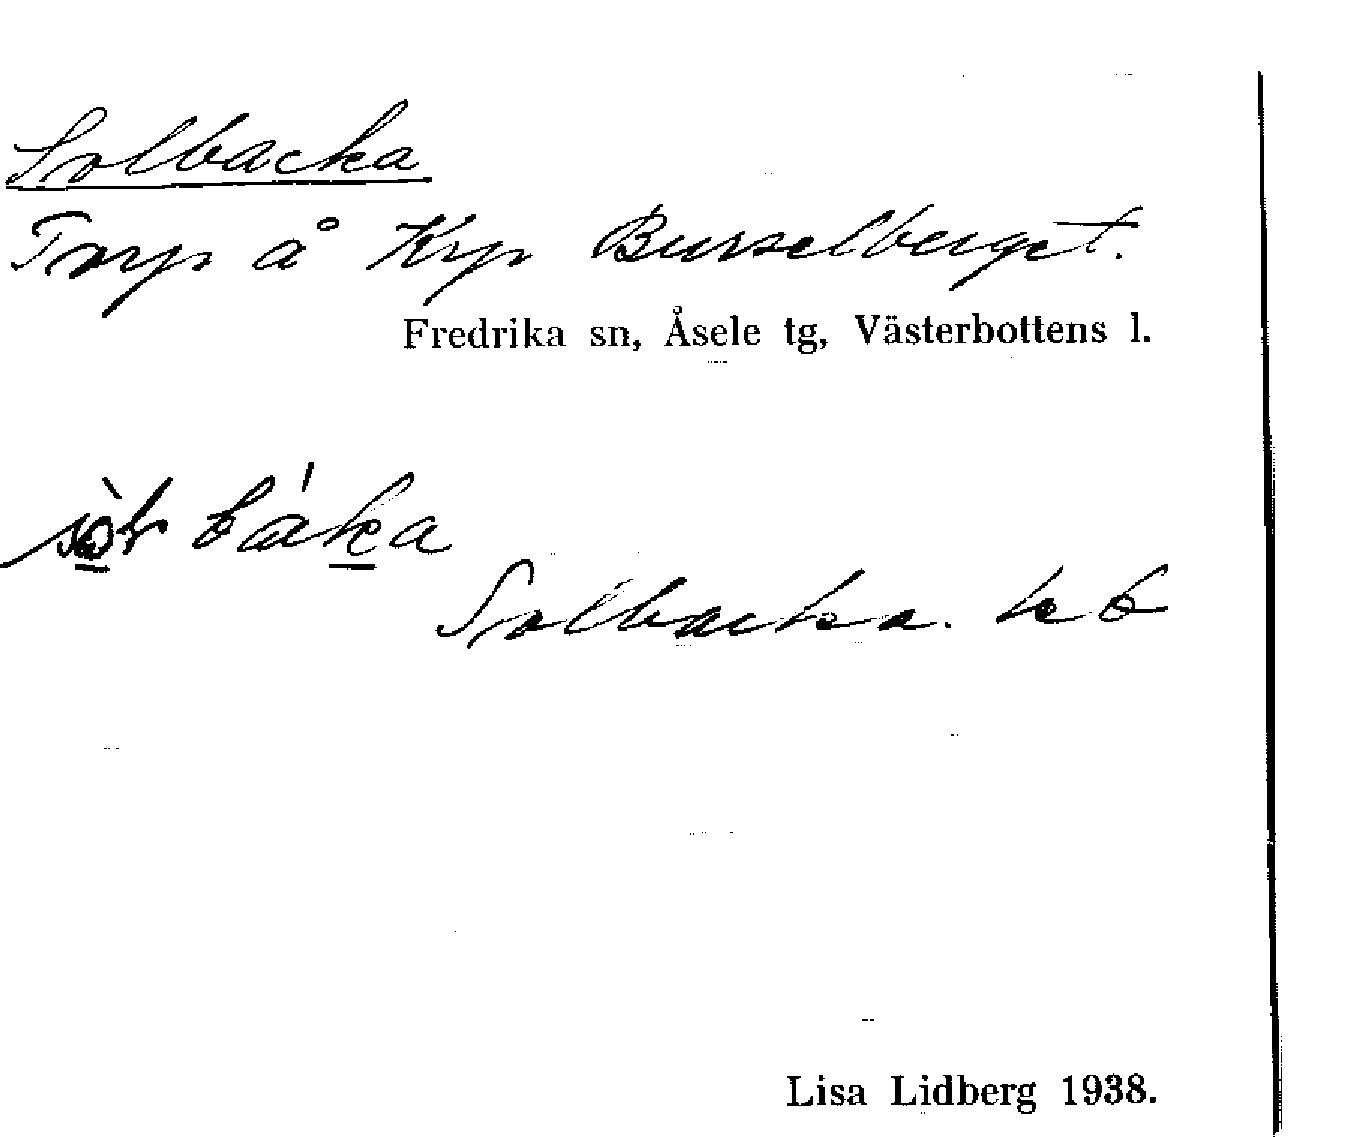 Solbacka
Torp å Krp Bursselberget.
Fredrika sn, Åsele tg, Västerbottens l.
báka
Solbacka. kb
Lisa Lidberg 1938.